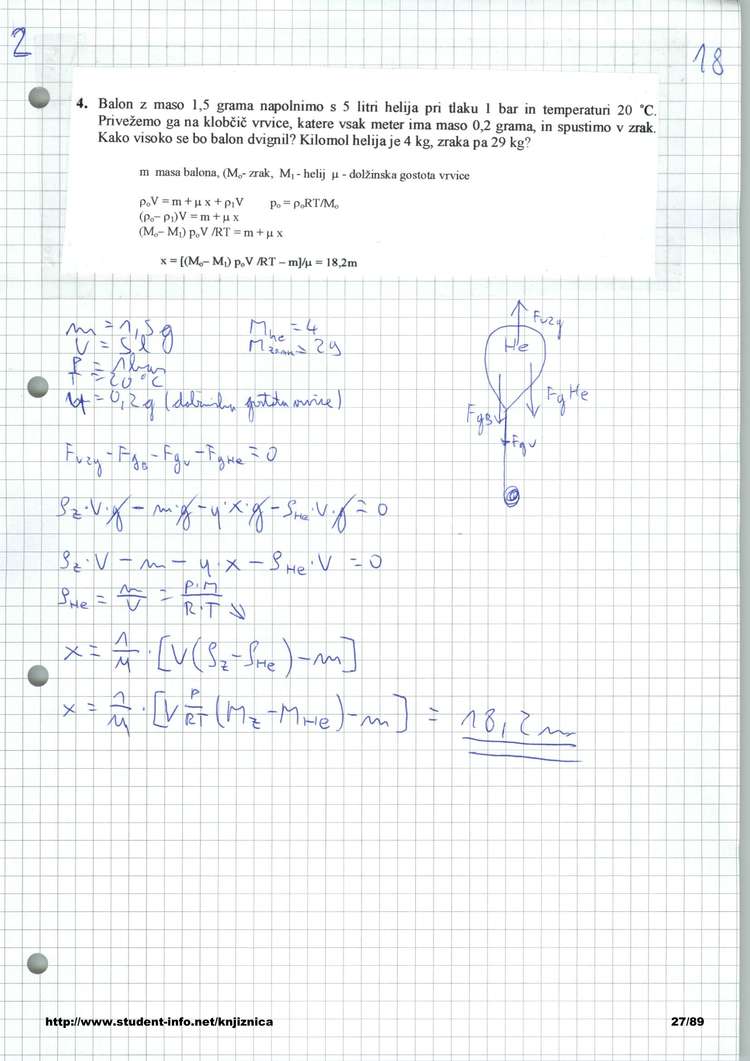 2
18
4. Balon z maso 1,5 grama napolnimo s 5 litri helija pri tlaku 1 bar in temperaturi 20 °C.
Privežemo ga na klobčič vrvice, katere vsak meter ima maso 0,2 grama, in spustimo v zrak.
Kako visoko se bo balon dvignil? Kilomol helija je 4 kg, zraka pa 29 kg?
m masa balona, (M₀- zrak, M₁ - helij μ - dolžinska gostota vrvice
ρ₀V = m + μ x + ρ₁V p₀ = ρ₀RT/M₀
(ρ₀– ρ₁)V = m + μ x
(M₀– M₁) p₀V /RT = m + μ x
x = [(M₀– M₁) p₀V /RT – m]/μ = 18,2m
m = 1,5g M He = 4
V = 5l M zrak = 29
P = 1bar
T = 20°C
μ = 0,2g (dolžinska gostota vrvice)
Fvzg
He
FgHe
FgB
Fgv
Fvzg - FgB - Fgv - FgHe = 0
ρz·V·g - m·g - μ·x·g - ρHe·V·g = 0
ρz·V - m - μ·x - ρHe·V = 0
ρHe = m/V = P·M/R·T
x = 1/μ · [V(ρz - ρHe) - m]
x = 1/μ · [V P/RT (Mz - MHe) - m] = 18,2m
http://www.student-info.net/knjiznica 27/89